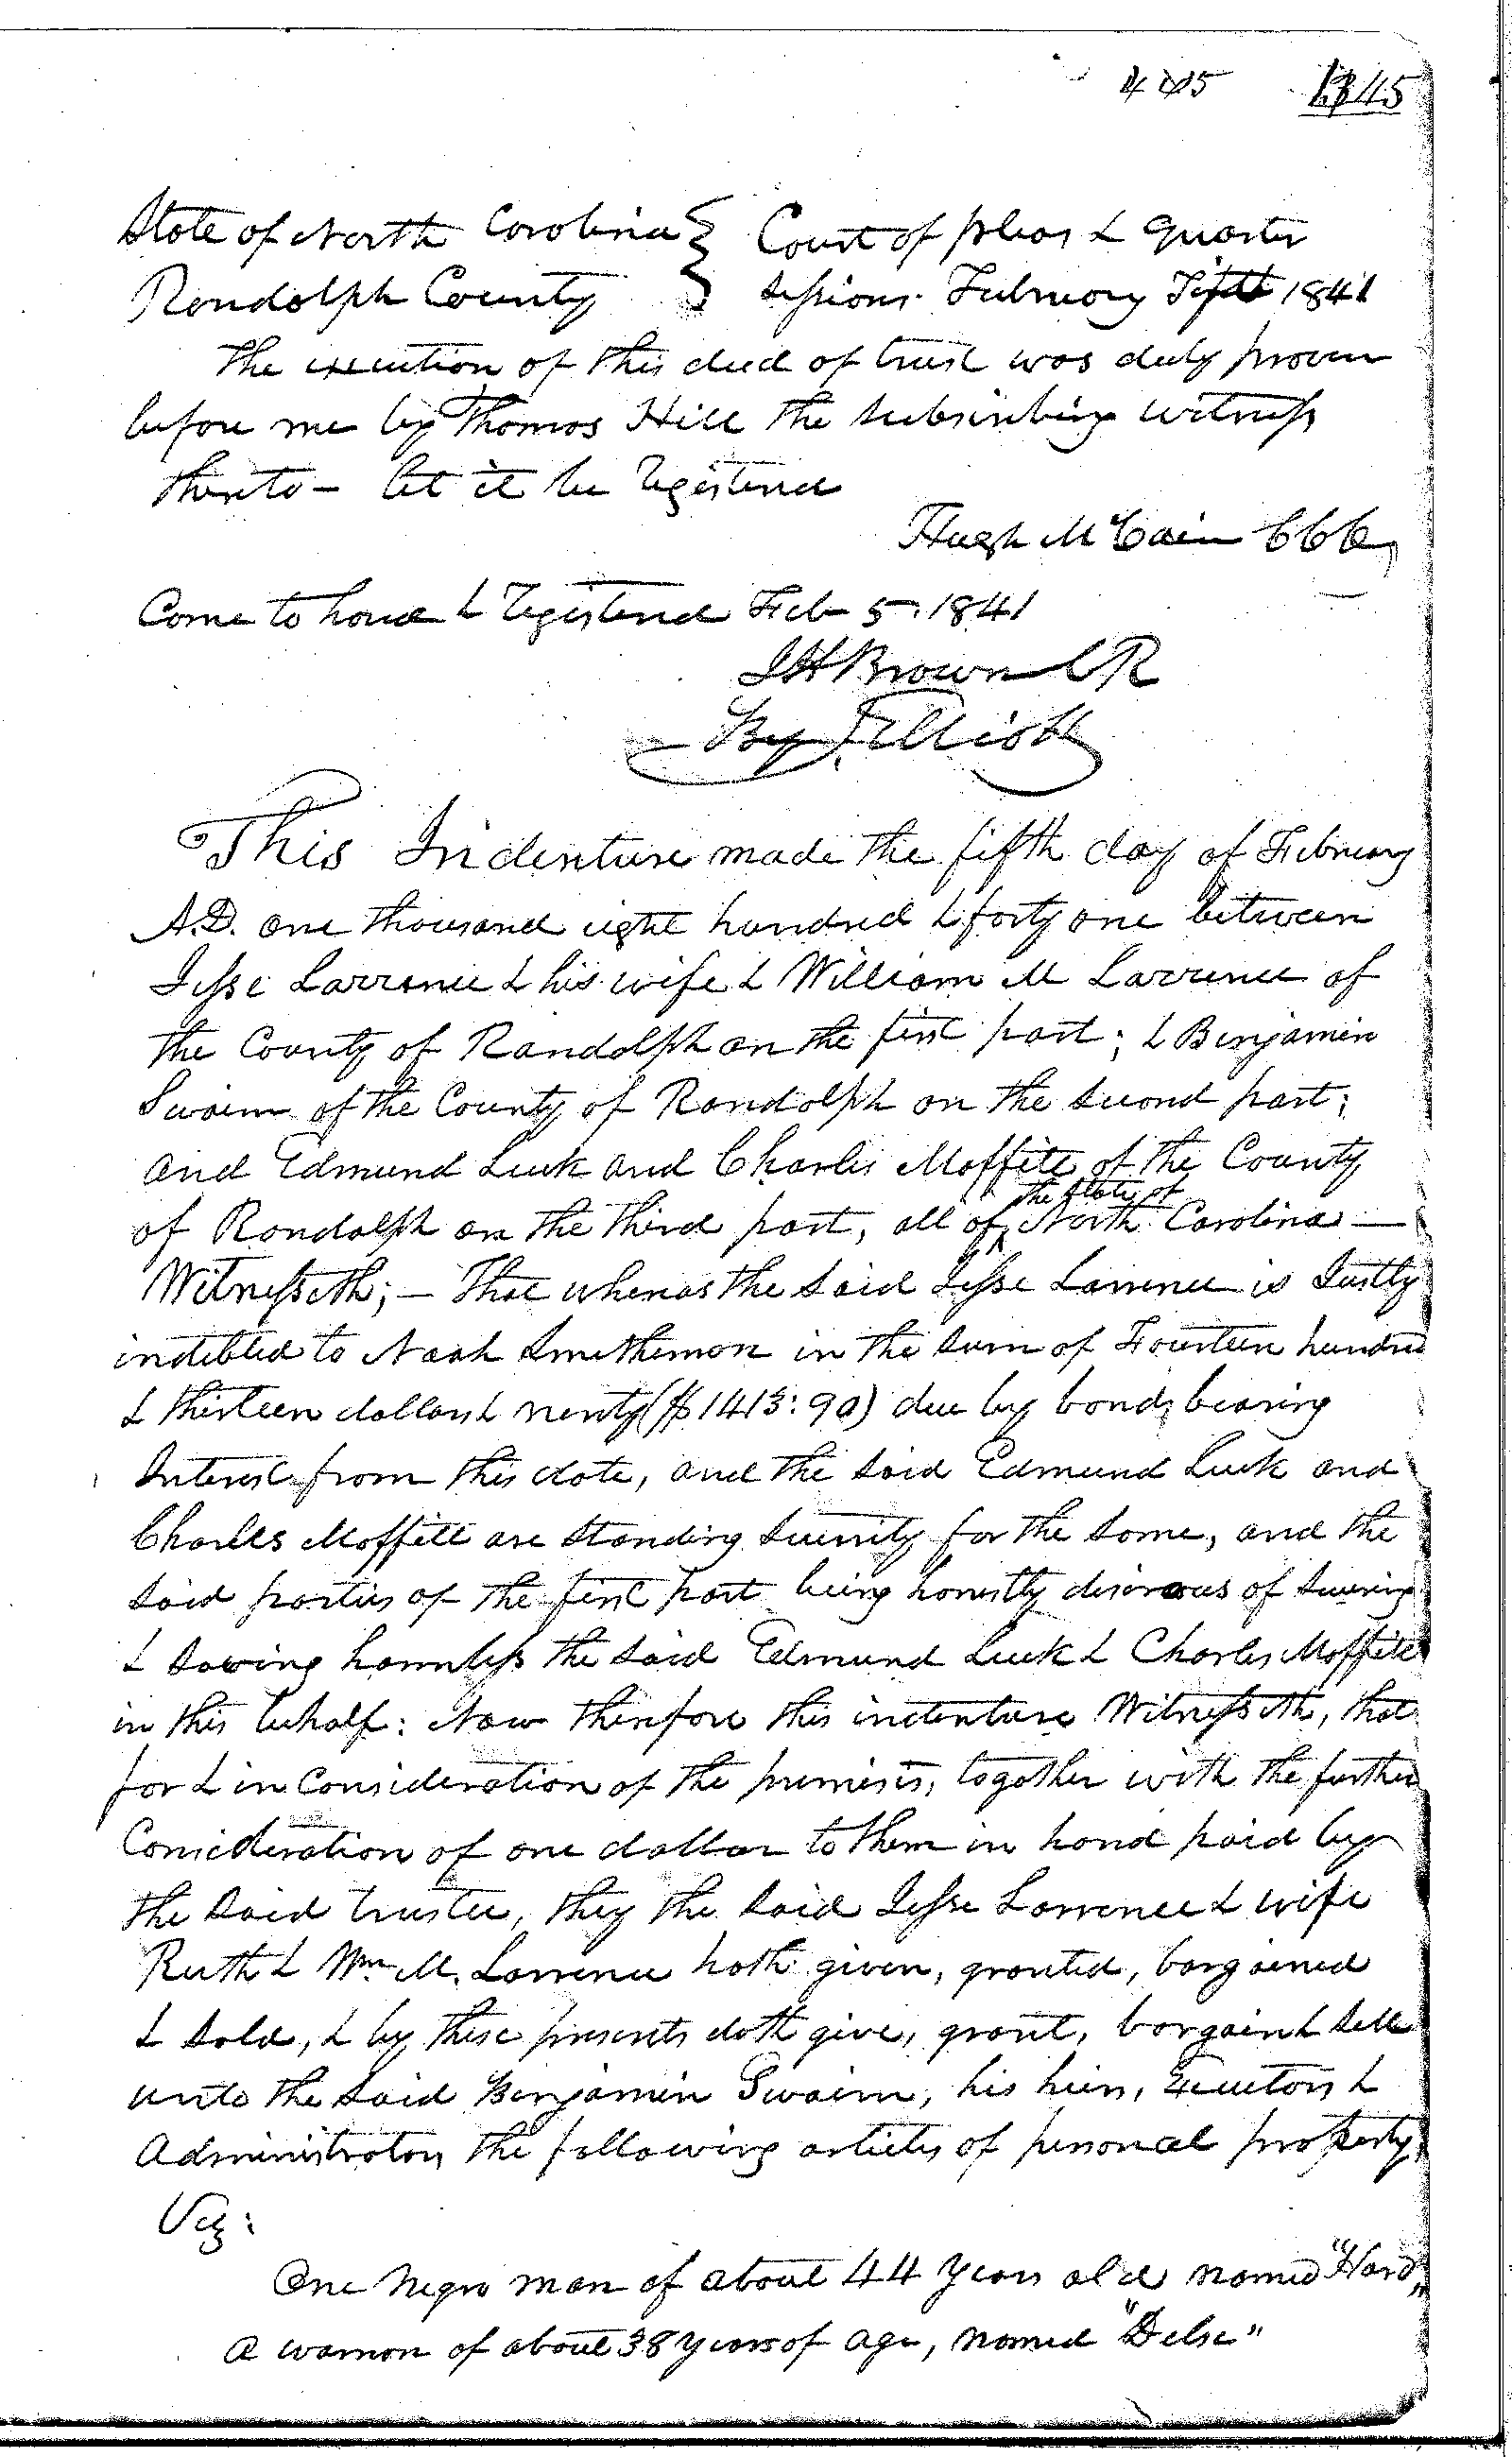 445 445
State of North Carolina } Court of pleas & Quarter
Randolph County } Sessions. February 1841
The execution of this deed of trust was duly proven
before me by Thomas Hill the subscribing witness
thereto – let it be registered
Hugh McCain CCC
Come to hand & registered Feb 5. 1841
JH Brown CR
By J. Elliott
This Indenture made the fifth day of February
A.D. one thousand eight hundred & forty one between
Jesse Larrence & his wife & William M Larrence of
the County of Randolph on the first part; & Benjamin
Swaim of the County of Randolph on the second part;
and Edmund Luck and Charles Moffitt of the County
of Randolph on the third part, all of the State of North Carolina —
Witnesseth; – That whereas the said Jesse Larrence is Justly
indebted to Noah Smitherman in the sum of Fourteen hundred
& thirteen dollars & ninty ($1413:90) due by bond, bearing
Interest from this date, and the said Edmund Luck and
Charles Moffitt are standing security for the same, and the
said parties of the first part being honestly desirous of securing
& saving harmless the said Edmund Luck & Charles Moffitt
in this behalf: Now therefore this indenture Witnesseth, that
for & in Consideration of the premises, together with the further
Consideration of one dollar to them in hand paid by
the said trustee, they the said Jesse Larrence & wife
Ruth & Wm M. Larrence hath given, granted, bargained
& sold, & by these presents doth give, grant, bargain & sell
unto the said Benjamin Swaim, his heirs, Executors &
Administrators the following articles of personal property,
Viz:
One Negro man of about 44 years old named "Hard"
a woman of about 38 years of age, named "Delse"